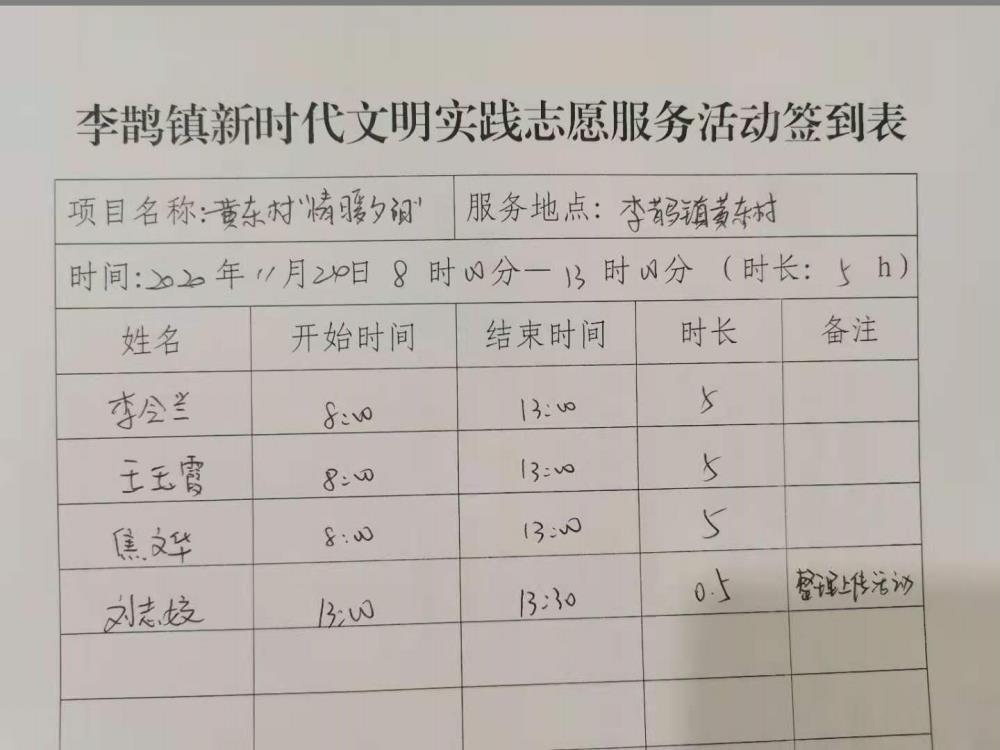 李鹊镇新时代文明实践志愿服务活动签到表
项目名称:黄东村"情暖夕阳" 服务地点:李鹊镇黄东村
时间:2020年11月24日 8时00分—13时00分(时长:5 h)
姓名 开始时间 结束时间 时长 备注
李会兰 8:00 13:00 5
王玉霞 8:00 13:00 5
焦文华 8:00 13:00 5
刘志姣 13:00 13:30 0.5 整理上传活动